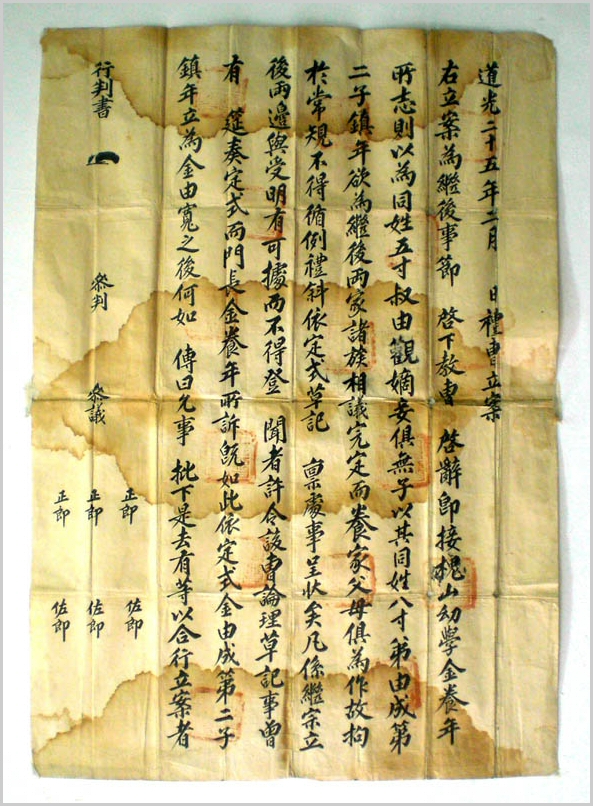 道光二十五年二月 日禮曺立案
右立案為繼後事節 啓下敎曺 啓辭卽接槐山幼學金養年
所志則以為同姓五寸叔由觀嫡妾俱無子以其同姓八寸弟由成第
二子鎮年欲為繼後兩家諸族相議完定而養家父母俱為作故拘
於常規不得循例禮斜依定式草記 禀處事呈狀矣凡係繼宗立
後兩邊與受明有可據而不得登 聞者許令該曺論理草記事曾
有 筵奏定式而門長金養年所訴旣如此依定式金由成第二子
鎮年立為金由寬之後何如 傳曰允事 批下是去有等以合行立案者
行判書 叅判 叅議 正郞 正郞 正郞 佐郞 佐郞 佐郞